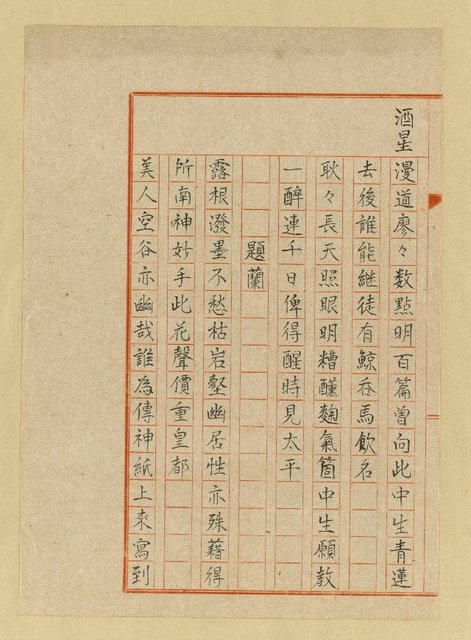 酒星
漫道廖々数點明百篇曾向此中生青蓮
去後誰能继徒有鯨吞馬飲名
耿々長天照眼明糟醺麴氣箇中生願教
一醉連千日俾得醒時見太平
題蘭
露根潑墨不愁枯岩壑幽居性亦殊藉得
所南神妙手此花聲價重皇都
美人空谷亦幽哉誰為傳神紙上来寫到